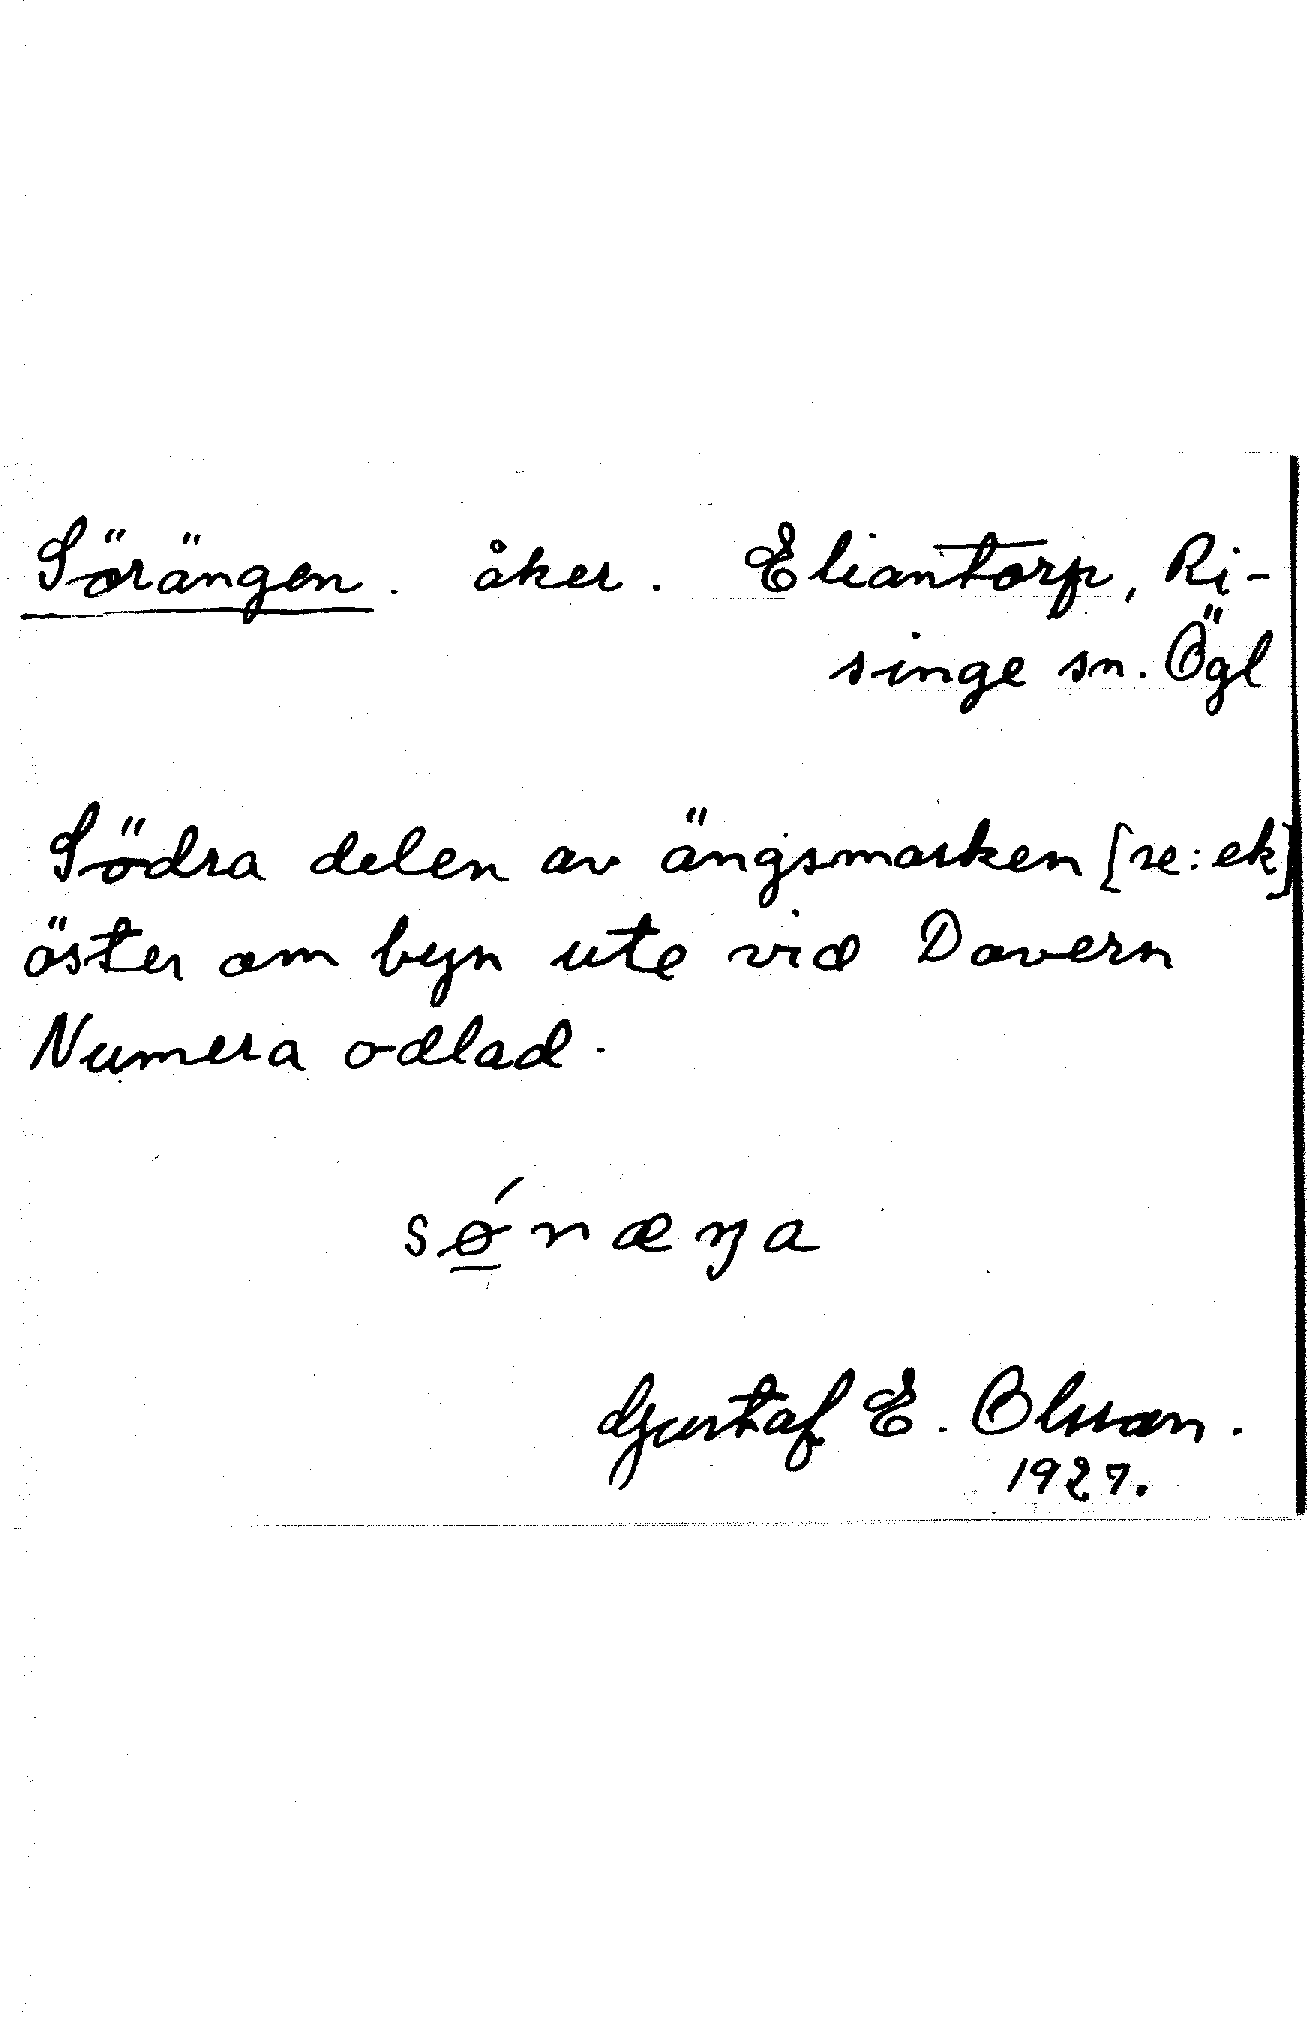 Sörängen. åker. Eliantorp, Ri-
singe sn. Ögl
Södra delen av ängsmarken [se: ek]
öster om byn ute vid Dovern
Numera odlad.
sǿræŋa
Gustaf E. Olsson.
1927.